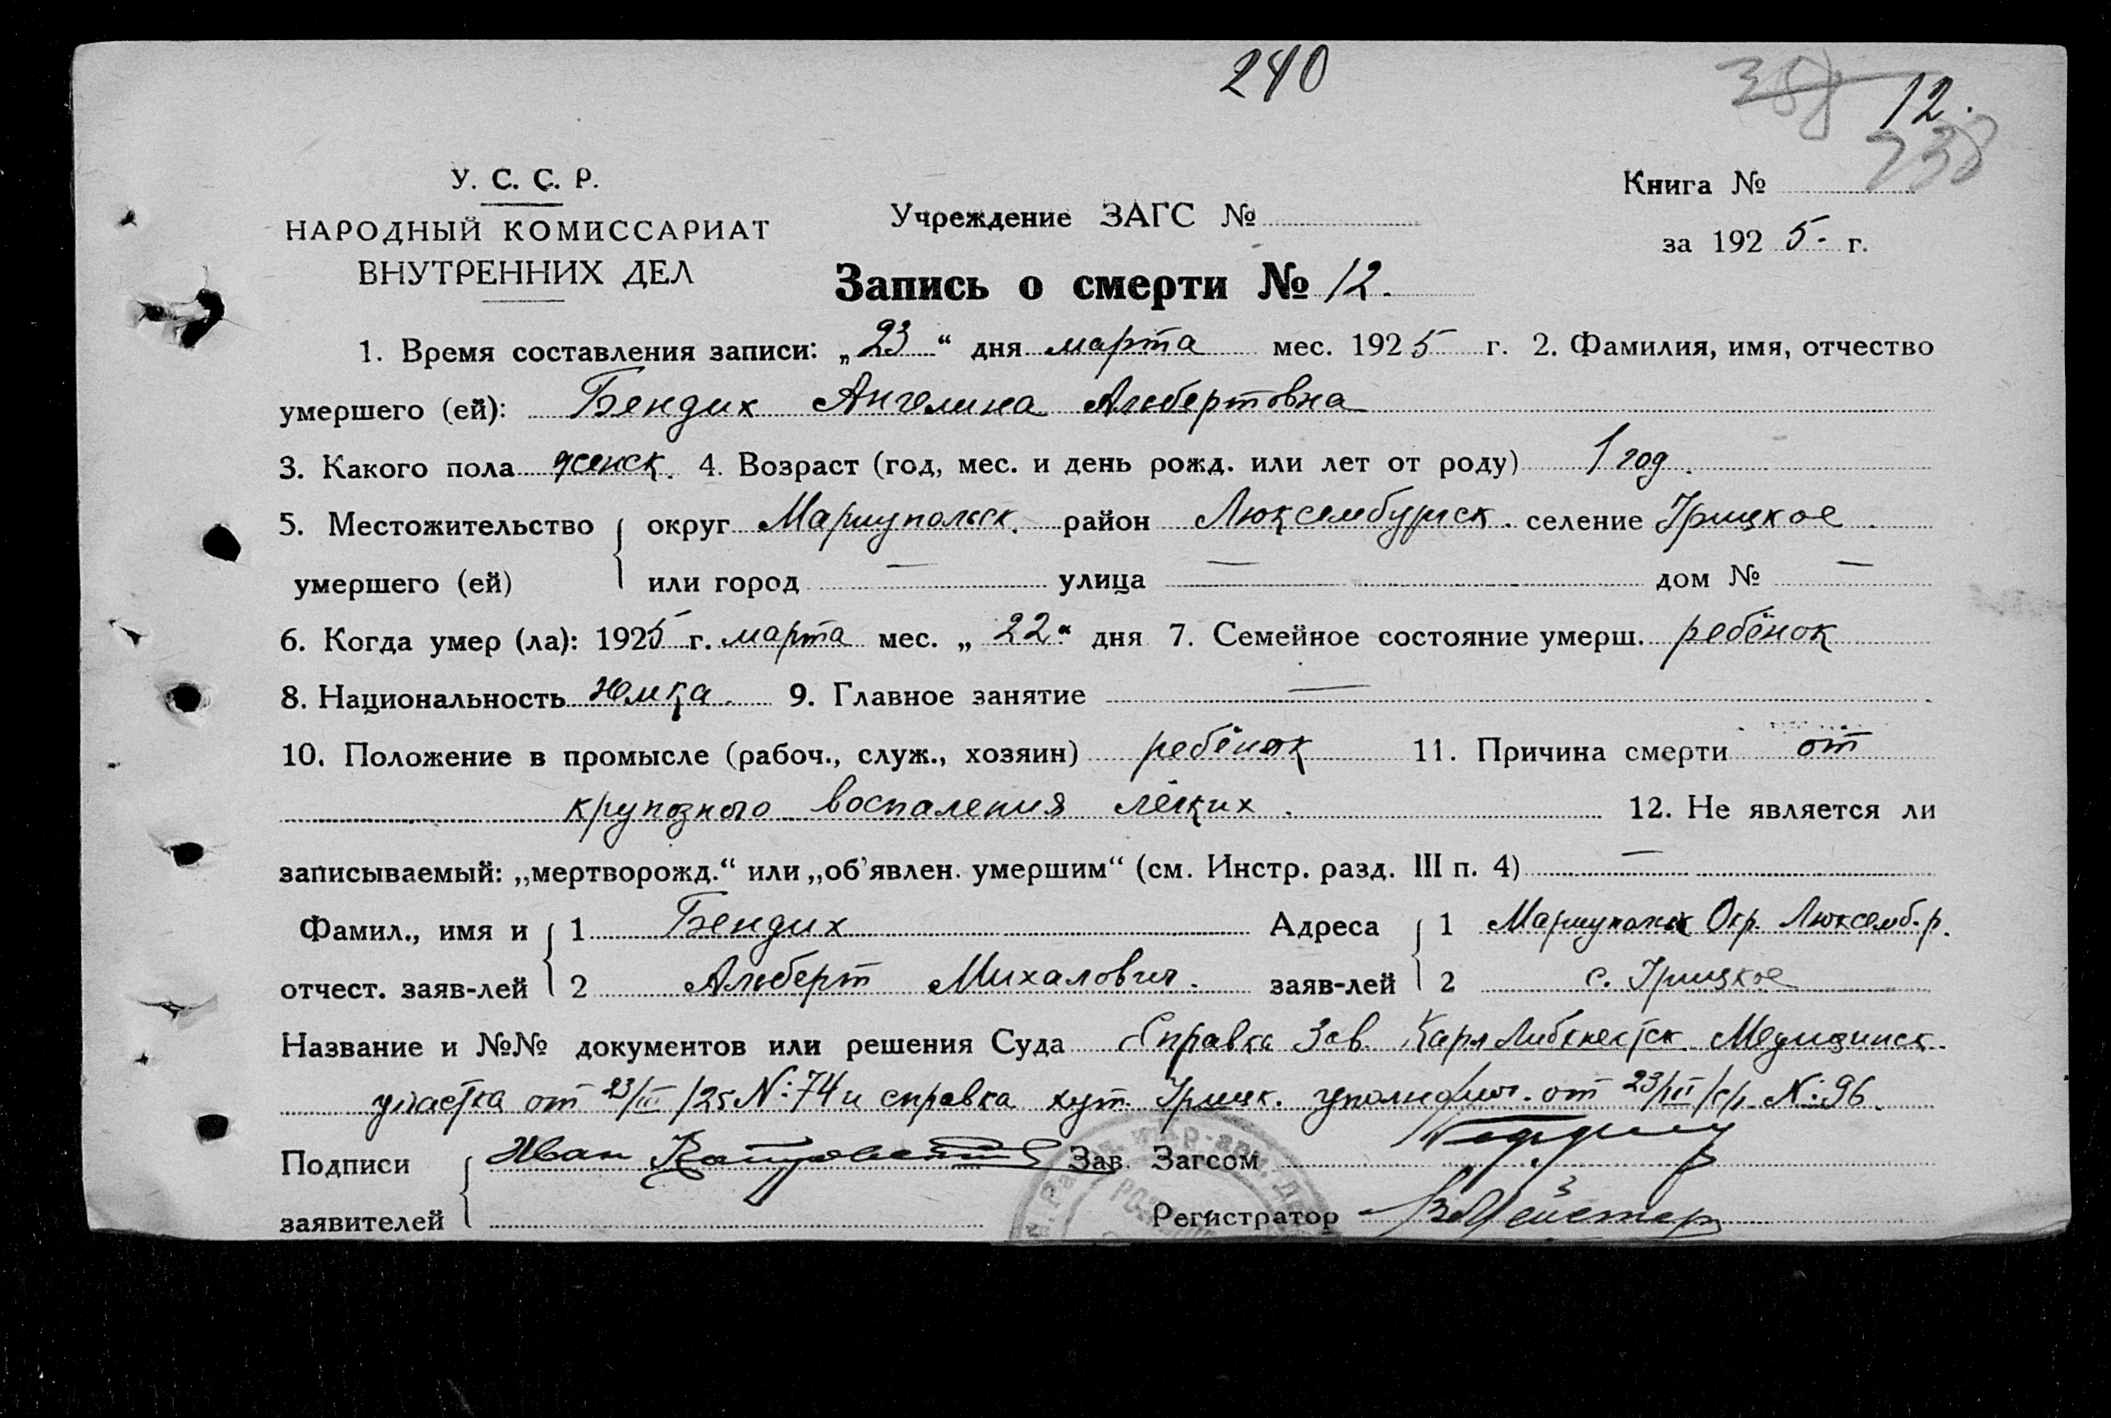 240
388 12.
238
У. С. С. Р.
НАРОДНЫЙ КОМИССАРИАТ
ВНУТРЕННИХ ДЕЛ
Учреждение ЗАГС №
Книга №
за 1925 г.
Запись о смерти № 12.
1. Время составления записи: „23“ дня марта мес. 1925 г. 2. Фамилия, имя, отчество
умершего (ей): Бендих Ангелина Альбертовна
3. Какого пола женск. 4. Возраст (год, мес. и день рожд. или лет от роду) 1 год.
5. Местожительство округ Мариупольск. район Люксембургск. селение Грицкое
умершего (ей) или город — улица — дом № —
6. Когда умер (ла): 1925 г. марта мес. „22“ дня 7. Семейное состояние умерш. ребёнок
8. Национальность немка. 9. Главное занятие —
10. Положение в промысле (рабоч., служ., хозяин) ребёнок 11. Причина смерти от
крупозного воспаления лёгких. 12. Не является ли
записываемый: „мертворожд.“ или „об’явлен. умершим“ (см. Инстр. разд. III п. 4) —
Фамил., имя и 1 Бендих Адреса 1 Мариупольск Окр. Люксемб. р.
отчест. заяв-лей 2 Альберт Михалович. заяв-лей 2 с. Грицкое
Название и №№ документов или решения Суда Справка Зав. Карл Либкнехтск Медицинск.
участка от 23/III/25 N: 74 и справка хут. Грицк. от 23/III N: 96.
Подписи Иван Зав. Загсом
заявителей Регистратор